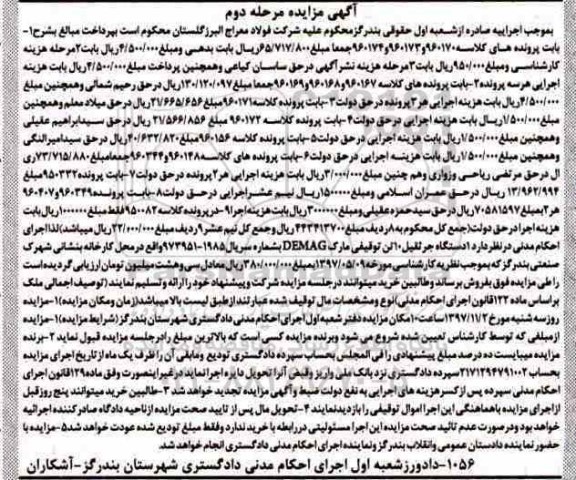 آگهی مزایده مرحله دوم
بموجب اجراییه صادره ازشعبه اول حقوقی بندرگزمحکوم علیه شرکت فولاد معراج البرزگلستان محکوم است بپرداخت مبالغ بشرح۱-
بابت پرونده هـای کلاسه۹۶۰۱۷۰و۹۶۰۱۷۳و۹۶۰۱۷۴جمعا مبلغ۶۵/۷۱۷/۸۰۰ریال بابت بدهـی ومبلغ۴/۵۰۰/۰۰۰ریال بابت۲مرحله هزینه
کارشناسی ومبلغ۹۵۰/۰۰۰ریال بابت۳مرحله هزینه نشرآگهی درحق ساسان کیاعی وهمچنین پرداخت مبلغ۴/۵۰۰/۰۰۰ریال بابت هزینه
اجرایی هرسه پرونده۲-بابت پرونده های کلاسه ۹۶۰۱۶۷و۹۶۰۱۶۸و۹۶۰۱۶۹جمعا مبلغ۱۳۰/۱۲۰/۰۹۷ریال درحق رحیم شمالی وهمچنین مبلغ
۴/۵۰۰/۰۰۰ریال بابت هزینه اجرایی هر۳پرونده درحق دولت۳-بابت پرونده کلاسه۹۶۰۱۷۱مبلغ۲۱/۶۶۵/۶۵۶ریال درحق میلاد معلم وهمچنین
مبلغ۱/۵۰۰/۰۰۰ریـال بابت هزینه اجرایی درحق دولت۴-بابت پرونده کلاسه ۹۶۰۱۷۲ مبلغ ۲۱/۵۶۶/۸۵۶ ریال درحق سیدابراهیم عقیلی
وهمچنین مبلغ۱/۵۰۰/۰۰۰ریال بابت هزینـه اجرایی درحق دولت۵-بابت پرونده کلاسه ۹۶۰۱۵۶مبلغ۴۰/۶۳۲/۸۲۰ریال درحق سیدامیرالنگی
وهمچنین مبلغ۱/۵۰۰/۰۰۰ریال بابت هزینـه اجرایی درحق دولت۶-بابت پرونده های کلاسه۹۶۰۱۴۸و۹۶۰۳۴۴جمعامبلغ۷۳/۷۱۵/۸۸۰ری
ال درحق مرتضی ریاحی وزواری وهم چنین مبلغ۳/۰۰۰/۰۰۰ریال بابت هزینه اجرایی هر۲پرونده درحق دولت۷-بابت پرونده۹۵۰۳۲۲مبلغ
۱۳/۹۶۲/۹۹۴ ریال درحق عمران اسلامی ومبلغ۱۵۰۰۰۰۰ریال نیم عشراجرایی درحق دولت۸-بابت پرونده۹۶۰۳۳۹و۹۶۰۴۰۷
هر۲بمبلغ۷۰۵۸۱۵۹۷ریال درحق سیدحمزه عقیلی ومبلغ۳۰۰۰۰۰۰ریال بابت هزینه اجرا۹-درپرونده کلاسه۹۵۰۰۸۲فقط مبلغ۱۰۰۰۰۰۰ریال بابت
هزینه اجرادرحق دولت(جمع کل محکوم به۸ردیف مبلغ۴۴۳۴۱۳۷۰۰ریال وجمع کل نیم عشر۹ردیف مبلغ۲۲/۰۰۰/۰۰۰ریال میباشد)لذااجرای
احکام مدنی درنظردارد۱دستگاه جرثقیل۱۰تن توقیفی مارک DEMAG بشماره سریال۱۹۸۵-۹۷۳۹۵۱واقع درمحل کارخانه بنشانی شهرک
صنعتی بندرگز که بموجب نظریه کارشناسی مورخه۱۳۹۷/۰۵/۰۹بمبلغ۳۸۰/۰۰۰/۰۰۰ریال معادل سی وهشت میلیون تومان ارزیابی گردیده است
را طی مزایده فوق بفروش برساند وطالبین خرید میتوانند درجلسه مزایده شرکت وپیشنهاد خود را ارائه وتسلیم نمایند(توصیف اجمالی ملک
براساس ماده ۱۲۲قانون اجرای احکام مدنی)نوع ومشخصات مال توقیف شده عبارتند ازطبق لیست بالا میباشد(زمان ومکان مزایده)۱-مزایده
روزسه شنبه مورخه۱۳۹۷/۱۱/۲ساعت۱۰مکان مزایده دفترشعبه اول اجرای احکام مدنی دادگستری شهرستان بندرگز(شرایط مزایده)۱-مزایده
ازمبلغی که توسط کارشناس تعیین شده شروع می شود وبرنده مزایده کسی است که بالاترین مبلغ رادرجلسه مزایده قبول نماید ۲-برنده
مزایده میبایست ده درصد مبلغ پیشنهادی را فی المجلس بحساب سپرده دادگستری تودیع ومابقی آن را ظرف یک ماه ازتاریخ اجرای مزایده
بحساب ۲۱۷۱۲۹۴۷۹۱۰۰۲سپرده دادگستری نزد بانک ملی واریز وفیش آنرا تحویل دایره اجرانماید درغیراینصورت وفق ماده۱۲۹قانون اجرای
احکام مدنی سپرده پس از کسرهزینه های اجرایی به نفع دولت ضبط ومزایده تجدید خواهد شد ۳-طالبین خرید میتوانند پنج روزقبل
ازاجرای مزایده باهماهنگی این اجرا اموال توقیفی را بازدیدنمایند ۴-تحویل مال پس از تایید صحت مزایده ازناحیه دادگاه صادرکننده اجرائیه
خواهد بود ودرصورت عدم تائید صحت مزایده این اجرا مسئولیتی دررابطه با خریدندارد وفقط مبلغ تودیع شده عودت خواهد شد۵-مزایده با
حضور نماینده دادستان عمومی وانقلاب بندرگز ونماینده اجرای احکام مدنی دادگستری انجام خواهد شد.
۱۰۵۶-دادورزشعبه اول اجرای احکام مدنی دادگستری شهرستان بندرگز-آشکاران